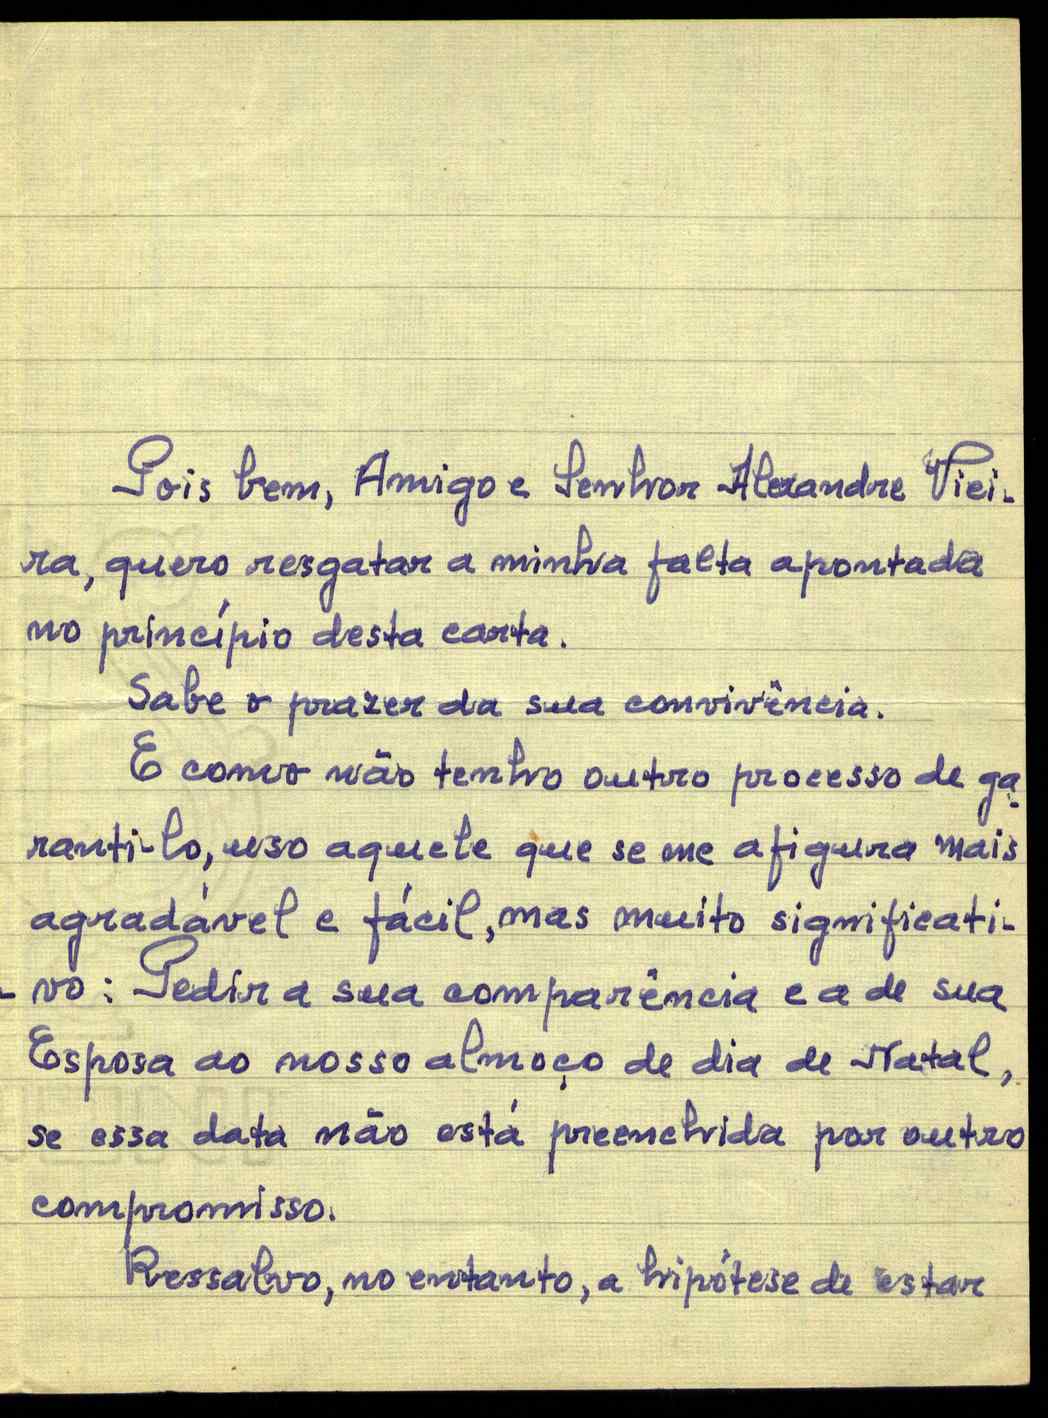 Pois bem, Amigo e Senhor Alexandre Viei-
ra, quero resgatar a minha falta apontada
no princípio desta carta.
Sabe o prazer da sua convivência.
E como não tenho outro processo de ga-
ranti-lo, uso aquele que se me afigura mais
agradável e fácil, mas muito significati-
vo: Pedir a sua comparência e a de sua
Esposa ao nosso almoço de dia de Natal,
se essa data não está preenchida por outro
compromisso.
Ressalvo, no entanto, a hipótese de estar